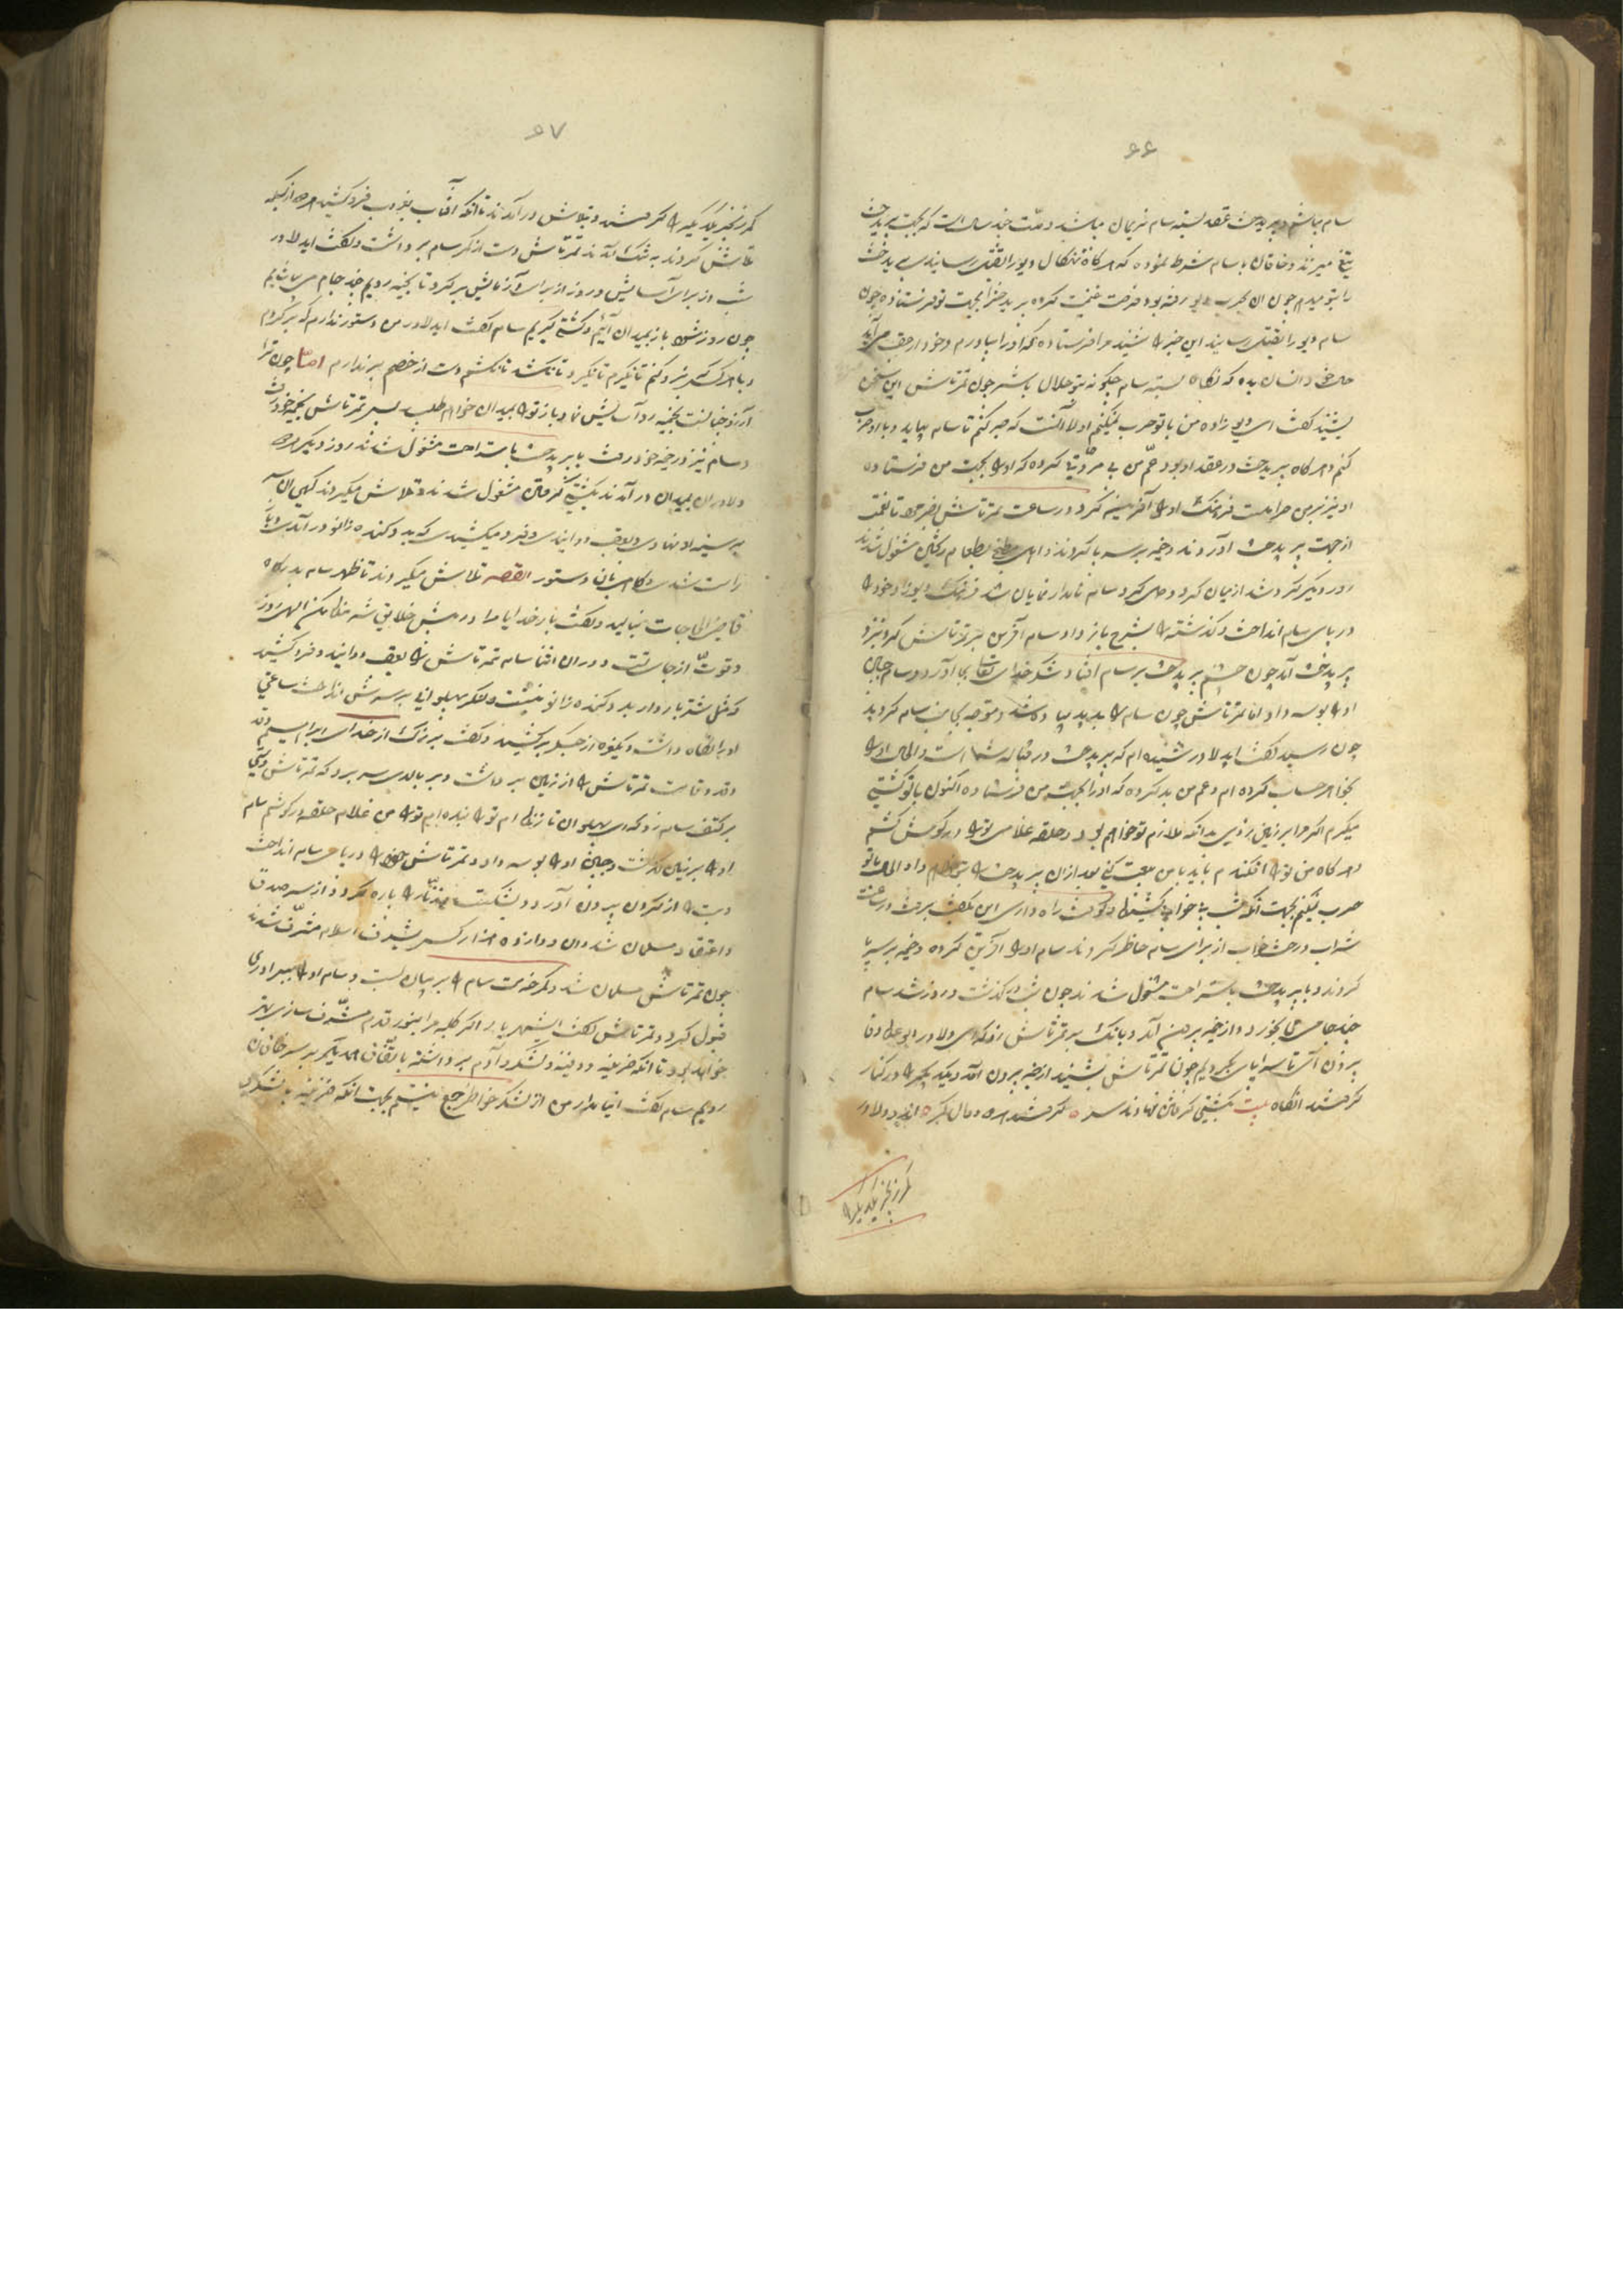 ۶۶
سام میباشم و پریدخت عقد بسته سام نریمان میباشد و مدت چند سال است که بجهت پریدخت
تیغ میزند و خاقان با سام شرط نموده که هرگاه نهنکال دیو را بقتل رسانیدی پریدخت
را بتو میدهم چون آن بحرب دیو رفته بود فرصت غنیمت کرده پریدخترا بجهت تو فرستاده چون
سام دیو را بقتل رسانید این خبر را شنید مرا فرستاده که او را بیاورم و خود از عقب میآید
حال خود انصاف بده که نکاح بسته سام چگونه بتو حلال باشد چون تمرتاش این سخن
بشنید گفت ای دیو زاده من با تو حرب نمیکنم اولا آنست که صبر کنم تا سام بیاید و با او حرب
کنم و هرگاه پریدخت در عقد او بود عم من بی مروتی کرده که او را بجهت من فرستاده
او نیز بر من حرامست فرهنگ او را آفرین کرد و در ساعت تمرتاش
از جهت پریدخت آوردند و خیمه بر سر پا کردند و اهل مطبخ بطعام پختن مشغول شدند
روز دیگر گرد شد از میان گرد سام نامدار نمایان شد فرهنگ دیوزاد خود را
در پای سام انداخت و گذشته را بشرح باز داد سام آفرین بر تمرتاش کرد و نزد
پریدخت آمد چون چشم پریدخت بر سام افتاد شکر خدای تعالی بجا آورد و سام جبین
او را بوسه داد اما تمرتاش چون سام را بدید پیاده شد و متوجه بجانب سام گردید
چون رسید گفت ایدلاور شنیده‌ام که پریدخت در قباله شما است و الحال او را
بخواهر حساب کرده‌ام و عم من بد کرده که او را بجهت من فرستاده اکنون با تو کشتی
میگیرم اگر مرا بر زمین زدی بدانکه ملازم تو خواهم بود و حلقه غلامی تو را در گوش کشم
و هرگاه من تو را افکندم باید با من بیعت کنی بعد از آن پریدخت را بتو خواهم داد الحال با تو
حرب نمیکنم بجهت آنکه شب بیخوابی کشیده و کوفت راه داری این بگفت برفت و در ساعت
شراب و رخت خواب از برای سام حاضر کردند سام او را آفرین کرده و خیمه بر سر پا
کردند و با پریدخت باستراحت مشغول شدند چون شب در گذشت و روز شد سام
چند جامی می بخورد و از خیمه بیرون آمد و بانگ بر تمرتاش زد که ای دلاور
بیرون آی تا سراپای بگردیم چون تمرتاش بشنید از خیمه بیرون آمد و یکدیگر را در کنار
گرفتند آنگاه بیت کشتی گرفتن نهادند سر گرفتند هر دو دوال کمر هر دو دلاور
کمر زنجیر یکدیگر را
۶۷
کمر زنجیر یکدیگر را گرفتند و بتلاش در آمدند تا آنکه آفتاب بغروب فرو کشید هر دو از بسکه
تلاش کردند به تنگ آمدند تمرتاش دست از کمر سام برداشت و گفت ایدلاور
شب از برای آسایش و روز از برای آزمایش برگرد تا بخیمه رویم چند جام می بیاشامیم
چون روز شود باز بمیدان آئیم و کشتی گیریم سام گفت ایدلاور من دستور ندارم که برگردم
و با هر کس که نبرد کنم تا نگیرم تا نگیرد و تا نکشد تا نکشم دست از خصم بر ندارم اما چون ترا
آرزو چنانست بخیمه رو آسایش نما و باز تو را بمیدان خواهم طلبید پس تمرتاش بخیمه خود رفت
و سام نیز در خیمه خود رفت با پریدخت باستراحت مشغول شدند روز دیگر هر دو
دلاوران بمیدان در آمدند بکشتی گرفتن مشغول شدند و تلاش میکردند گهی این سر
بر سینه او نهادی و بعقب دوانیدی و فرو میکشیدی که بدو کنده زانو در آمدی و باز
راست شدی و گاه آن باین دستور القصه تلاش میکردند تا ظهر سام بدرگاه
قاضی الحاجات بنالید و گفت بار خدایا مرا در پیش خلایق شرمنده مکن الهی زور
و قوت از جانب تست و در آن اثنا سام تمرتاش را بعقب دوانید و فرو کشید
که مثل شتر باردار بدو کنده زانو بنشست و لنگر پهلوانی بر سرش انداخت ساعتی
او را نگاه داشت و یک نعره از جگر برکشید و گفت بزرگ از خدای ابراهیم
و قد و قامت تمرتاش را از زمین برداشت و بر بالای سر برد که تمرتاش دستی
بر کتف سام زد که ای پهلوان تا زنده‌ام تو را بنده‌ام تو را من غلام حلقه در گوشم سام
او را بر زمین گذاشت و جبین او را بوسه داد و تمرتاش خود را در پای سام انداخت
و بت را از گردن بیرون آورد و بشکست و زنار را پاره کرد و از سر صدق
و اعتقاد مسلمان شد و آن دوازده هزار کس بشرف اسلام مشرف شدند
چون تمرتاش مسلمان شد و کمر خدمت سام را بر میان بست و سام او را ببرادری
قبول کرد و تمرتاش گفت ایشهریار اگر کلبه مرا بنور قدم مشرف سازی بهتر
خواهد بود تا آنکه خزینه و دفینه و لشکر و آدم برداشته باتفاق یکدیگر بر سر خاقان
رویم سام گفت اینامدار من از لشکر خواطر جمع نیستم بجهت آنکه خزینه با لشکر